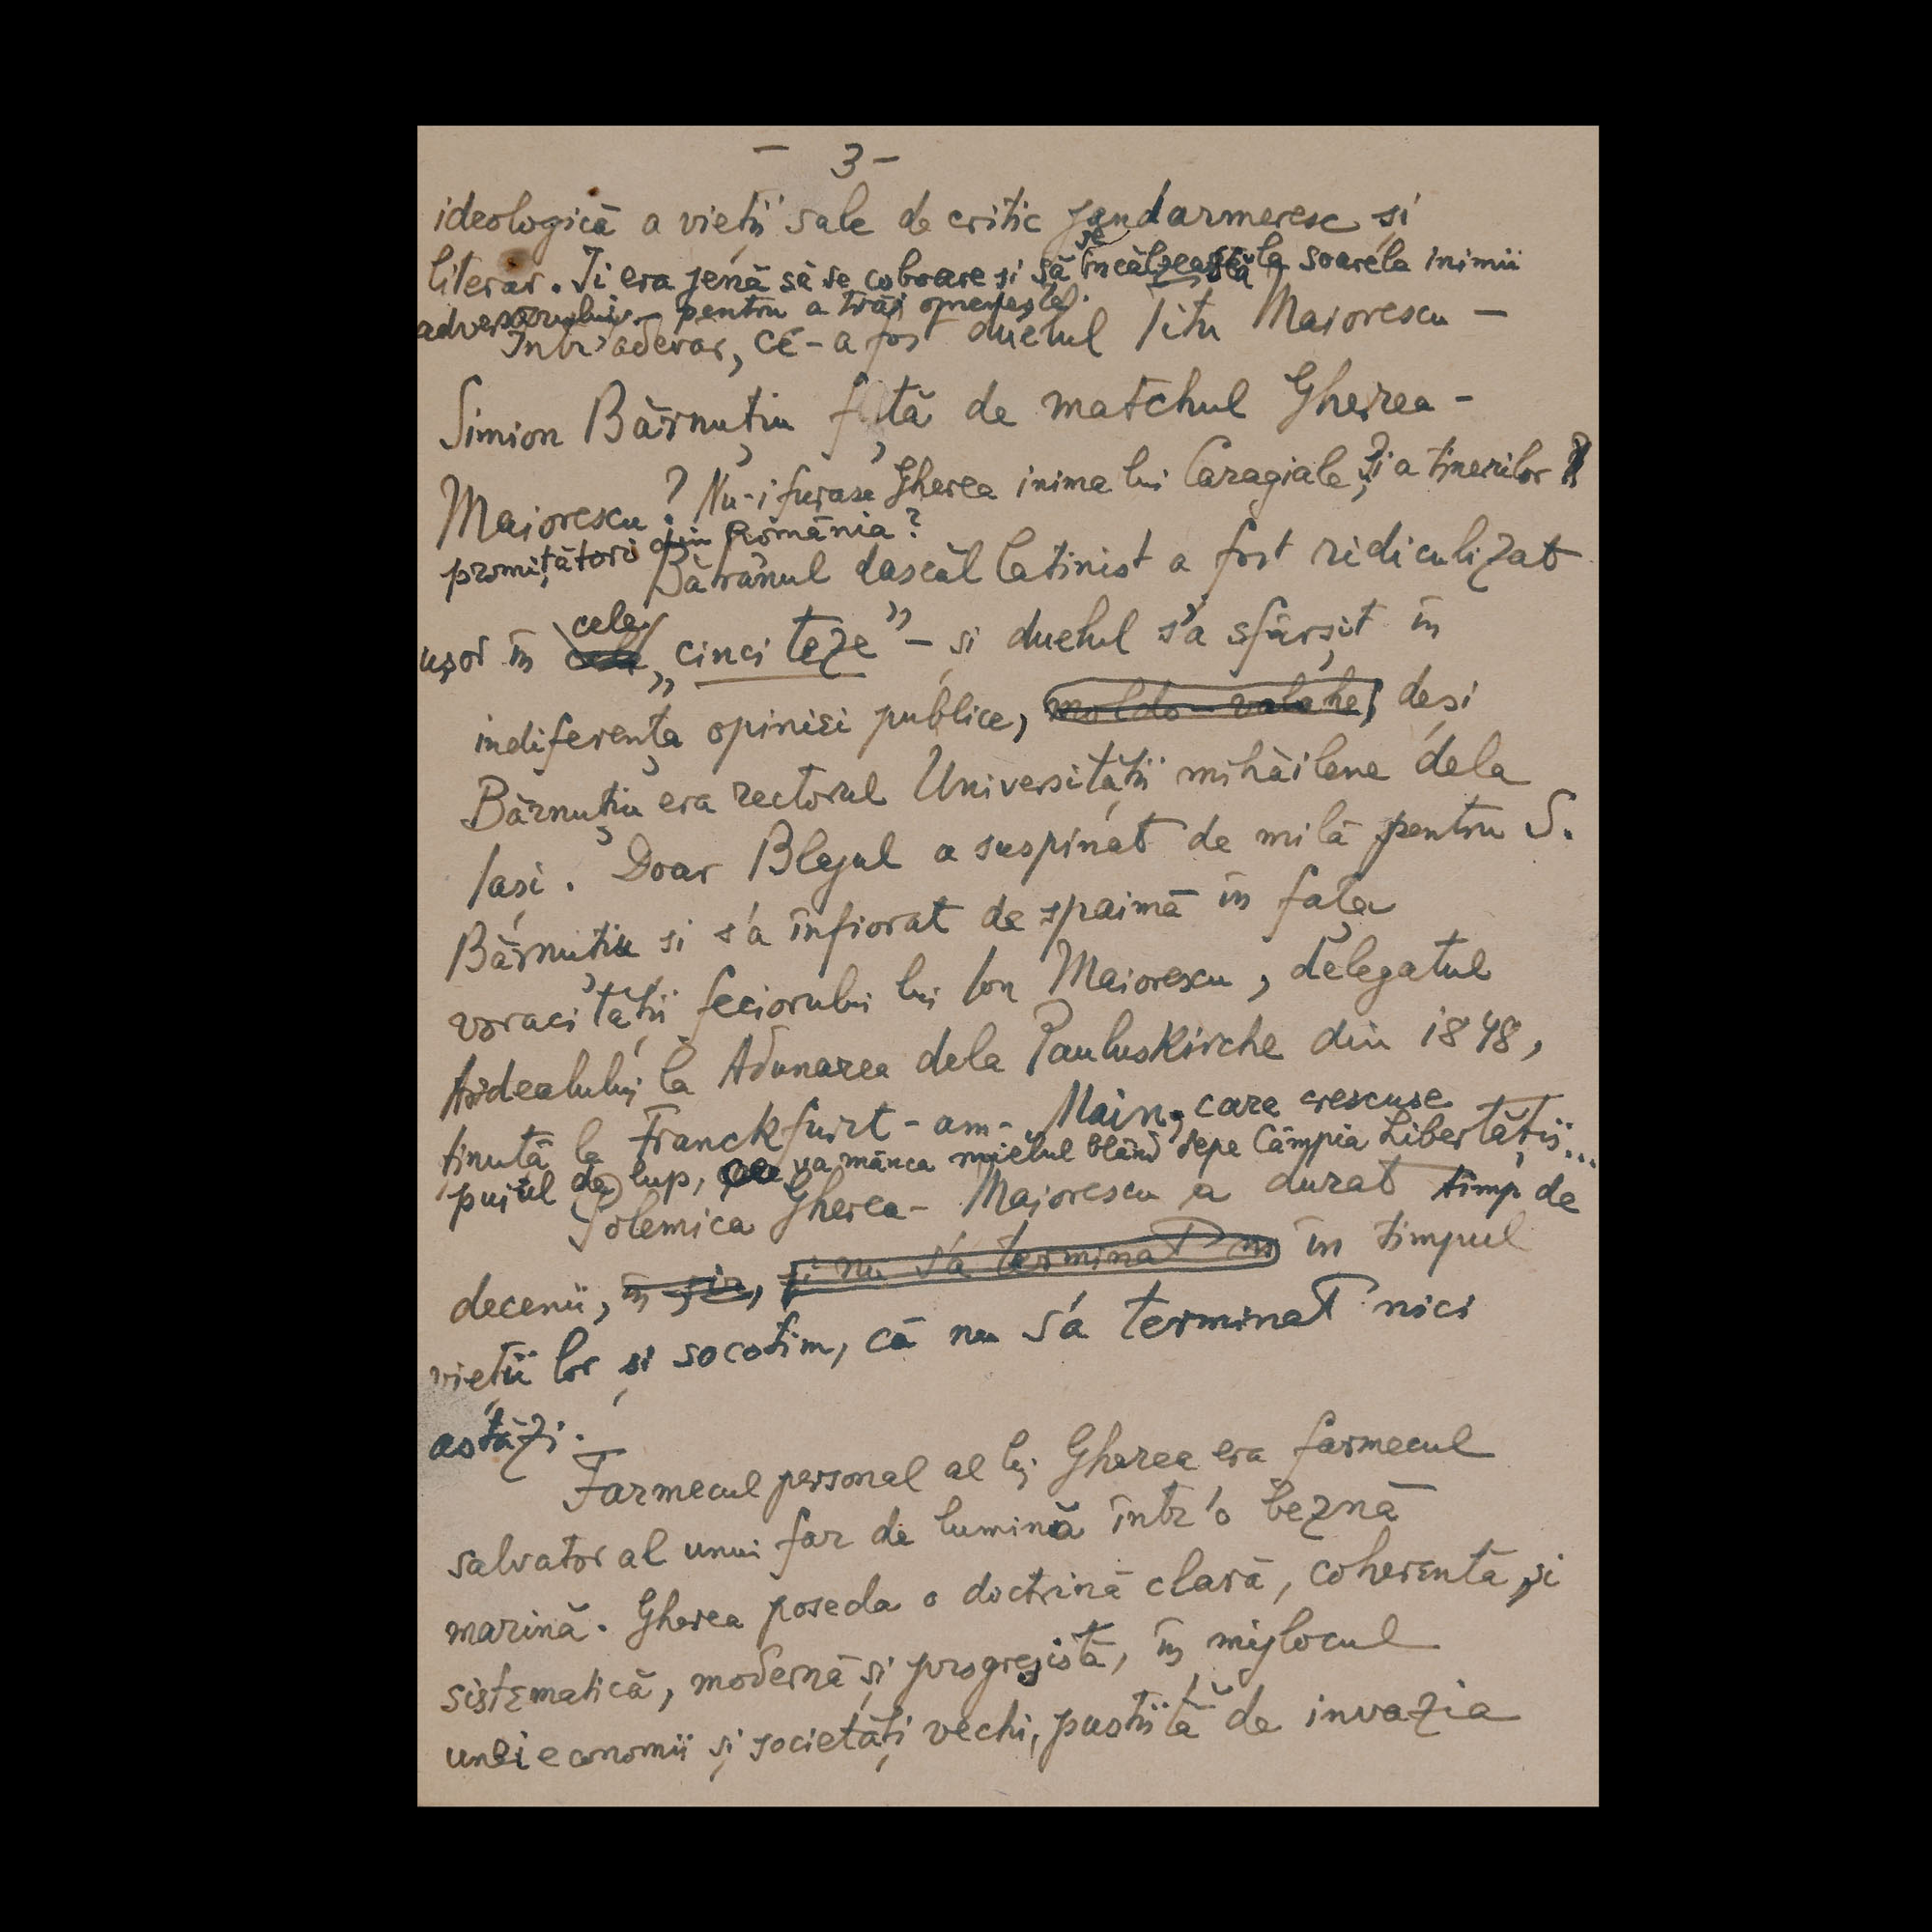 - 3 -
ideologică a vieții sale de critic jandarmeresc și
literar. Ii era jenă să se coboare și să se încălzească la soarele inimii
adversarului – pentru a trăi omenește.
Intr'adevăr, ce-a fost duelul Titu Maiorescu –
Simion Bărnuțiu față de matchul Gherea –
Maiorescu? Nu-i furase Gherea inima lui Caragiale, și a tinerilor
promițători din România?
Bătrânul dascăl latinist a fost ridiculizat
ușor în cele „cinci teze” – și duelul s'a sfârșit în
indiferența opiniei publice, moldo-valahe, deși
Bărnuțiu era rectorul Universității mihăilene dela
Iași. Doar Blajul a suspinat de milă pentru S.
Bărnuțiu și s'a înfiorat de spaimă în fața
voracității feciorului lui Ion Maiorescu, delegatul
Ardealului la Adunarea dela Pauluskirche din 1848,
ținută la Franckfurt-am-Main, care crescuse
puiul de lup, va mânca mielul blând depe Câmpia Libertății...
Polemica Gherea-Maiorescu a durat timp de
decenii, în șir, și nu s'a terminat în timpul
vieții lor și socotim, că nu s'a terminat nici
astăzi.
Farmecul personal al lui Gherea era farmecul
salvator al unui far de lumină într'o beznă
marină. Gherea poseda o doctrină clară, coherentă, și
sistematică, modernă și progresistă, în mijlocul
unei economii și societăți vechi, pustiită de invazia